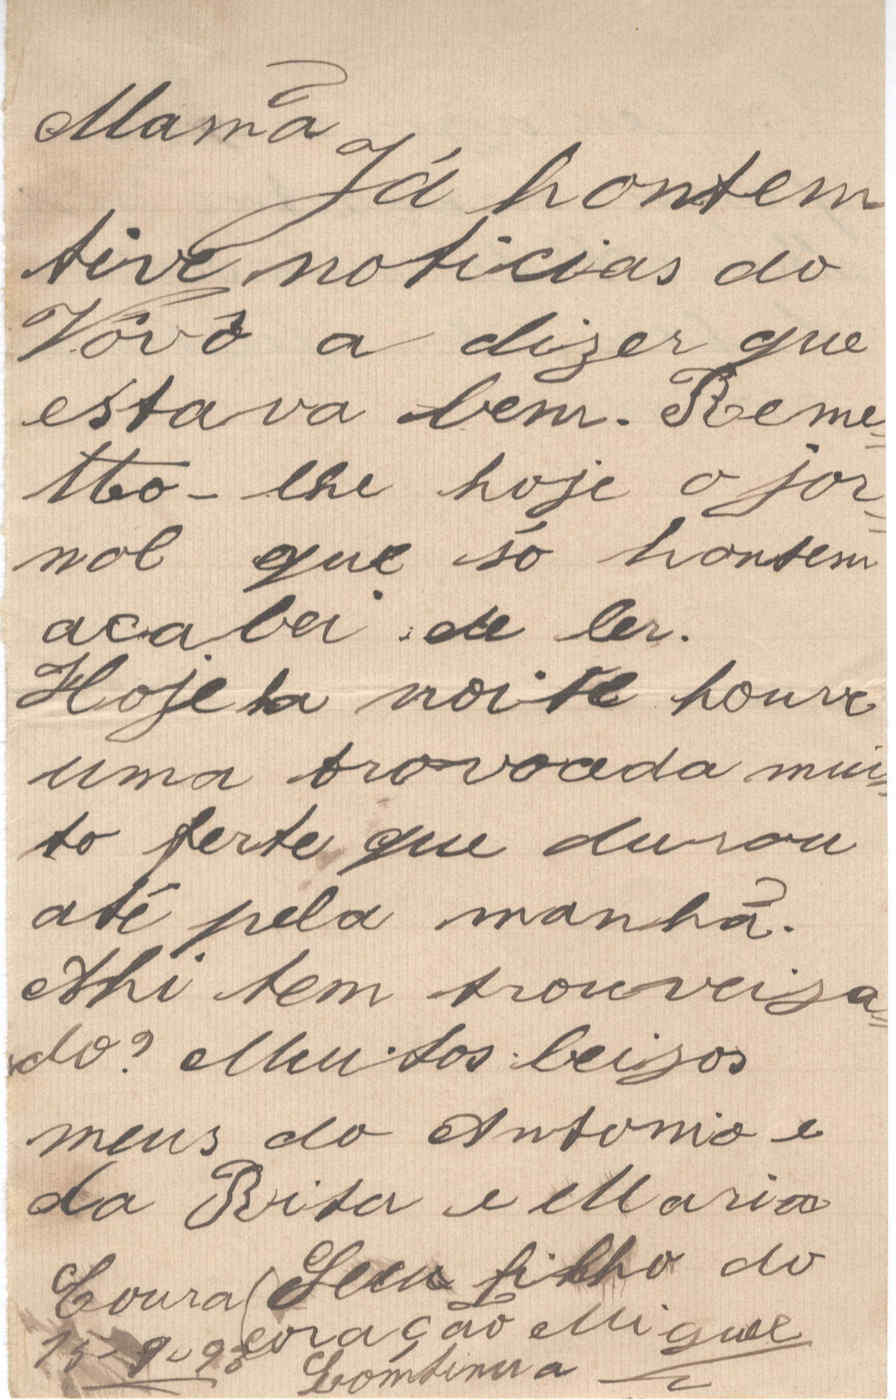 Mamã
Já hontem
tive noticias do
Vôvô a dizer que
estava bem. Reme=
tto-lhe hoje o jor=
nal que só hontem
acabei de ler.
Hoje á noite houve
uma trovoada mui=
to forte que durou
até pela manhã.
Ahi tem trouveija=
do? Muitos beijos
meus do Antonio e
da Rita e Maria
Seu filho do
Coura
coração Miguel
15-9-98
Continua